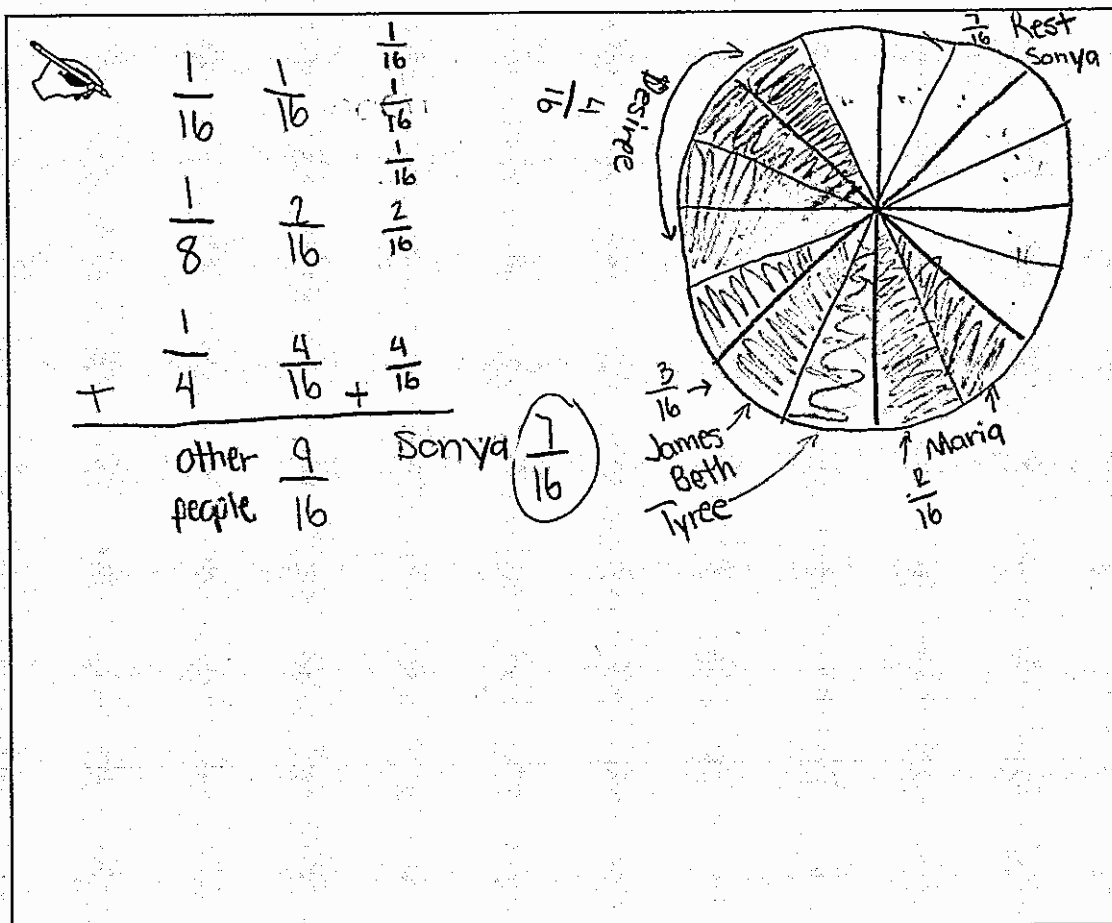 1/16 1/16 1/16
1/16
1/16
1/8 2/16 2/16
+ 1/4 4/16 + 4/16
other people 9/16 Sonya 7/16
7/16 Rest
Sonya
Desiree
4/16
3/16 →
James
Beth
Tyree
Maria
2/16